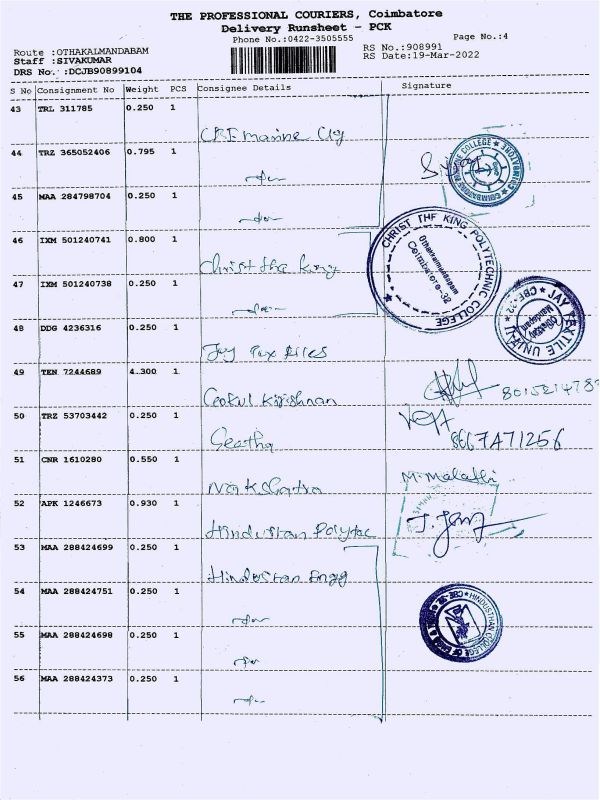 THE PROFESSIONAL COURIERS, Coimbatore
Delivery Runsheet - PCK
Phone No.:0422-3505555
Page No.:4
Route :OTHAKALMANDABAM
RS No.:908991
Staff :SIVAKUMAR
RS Date:19-Mar-2022
DRS No.:DCJB90899104
S No Consignment No Weight PCS Consignee Details Signature
43 TRL 311785 0.250 1
Marine Clg
COIMBATORE MARINE COLLEGE
44 TRZ 365052406 0.795 1
45 MAA 284798704 0.250 1
46 IXM 501240741 0.800 1
Christ the King
CHRIST THE KING POLYTECHNIC COLLEGE
Othakkalmandapam
Coimbatore-32
47 IXM 501240738 0.250 1
JAY TEXTILE UNIT-II CBE-32
48 DDG 4236316 0.250 1
Jay Tex tiles
49 TEN 7244689 4.300 1
Gokul Krishnan
50 TRZ 53703442 0.250 1
Geetha
51 CNR 1610280 0.550 1
M. Malathi
Nakshatra
52 APK 1246673 0.930 1
Hindustan Polytec
53 MAA 288424699 0.250 1
Hindustan Engg
54 MAA 288424751 0.250 1
HINDUSTHAN COLLEGE OF
55 MAA 288424698 0.250 1
56 MAA 288424373 0.250 1